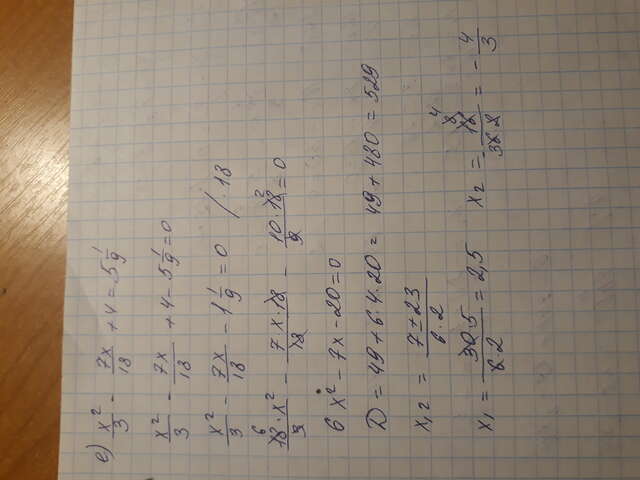 e) x²/3 - 7x/18 + 4 = 5 1/9
x²/3 - 7x/18 + 4 - 5 1/9 = 0
x²/3 - 7x/18 - 1 1/9 = 0 /·18
6
18·x²/3 - 7x·18/18 - 10·18/9 = 0
2
6x² - 7x - 20 = 0
D = 49 + 6·4·20 = 49 + 480 = 529
x₁,₂ = 7±23/6·2
x₁ = 30·5/6·2 = 2,5 x₂ = 16/36·2 = - 4/3